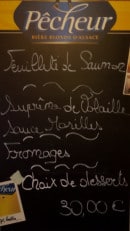 Pêcheur
BIÈRE BLONDE D'ALSACE
Feuilleté de Saumon
Suprême de Volaille
Sauce Morilles
Fromages
Choix de desserts
30,00 €
Pêcheur